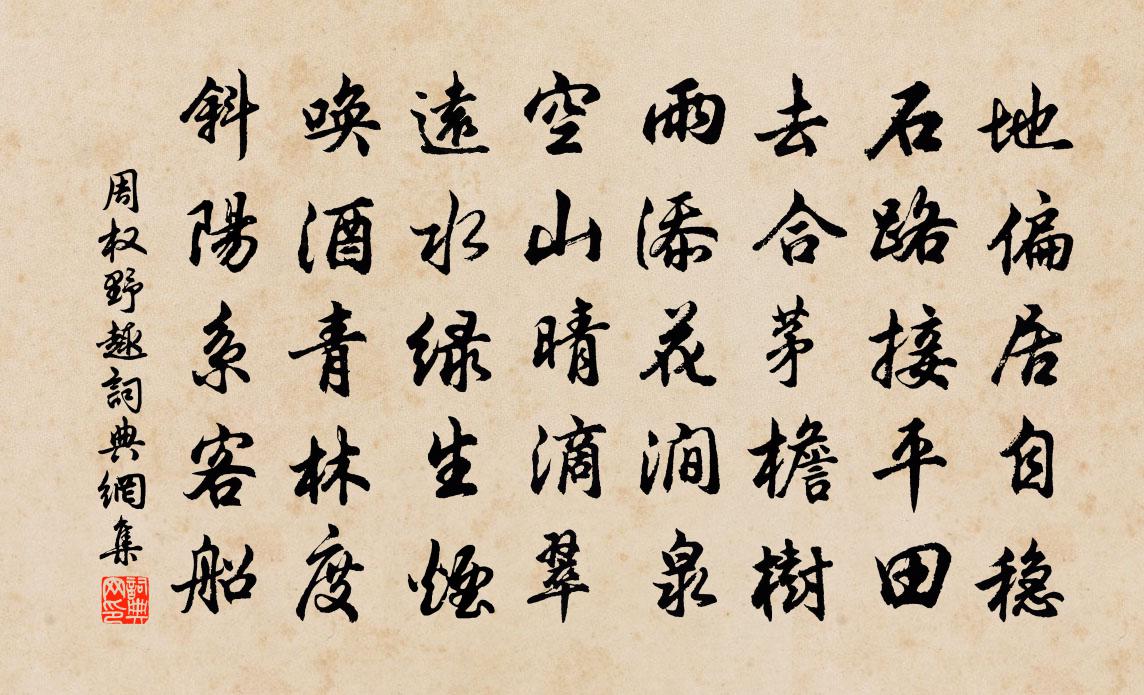 地偏居自稳
石路接平田
去合茅檐樹
雨添花澗泉
空山晴滴翠
遠水緑生煙
喚酒青林度
斜陽系客船
周权野趣詞典網集
詞典网印